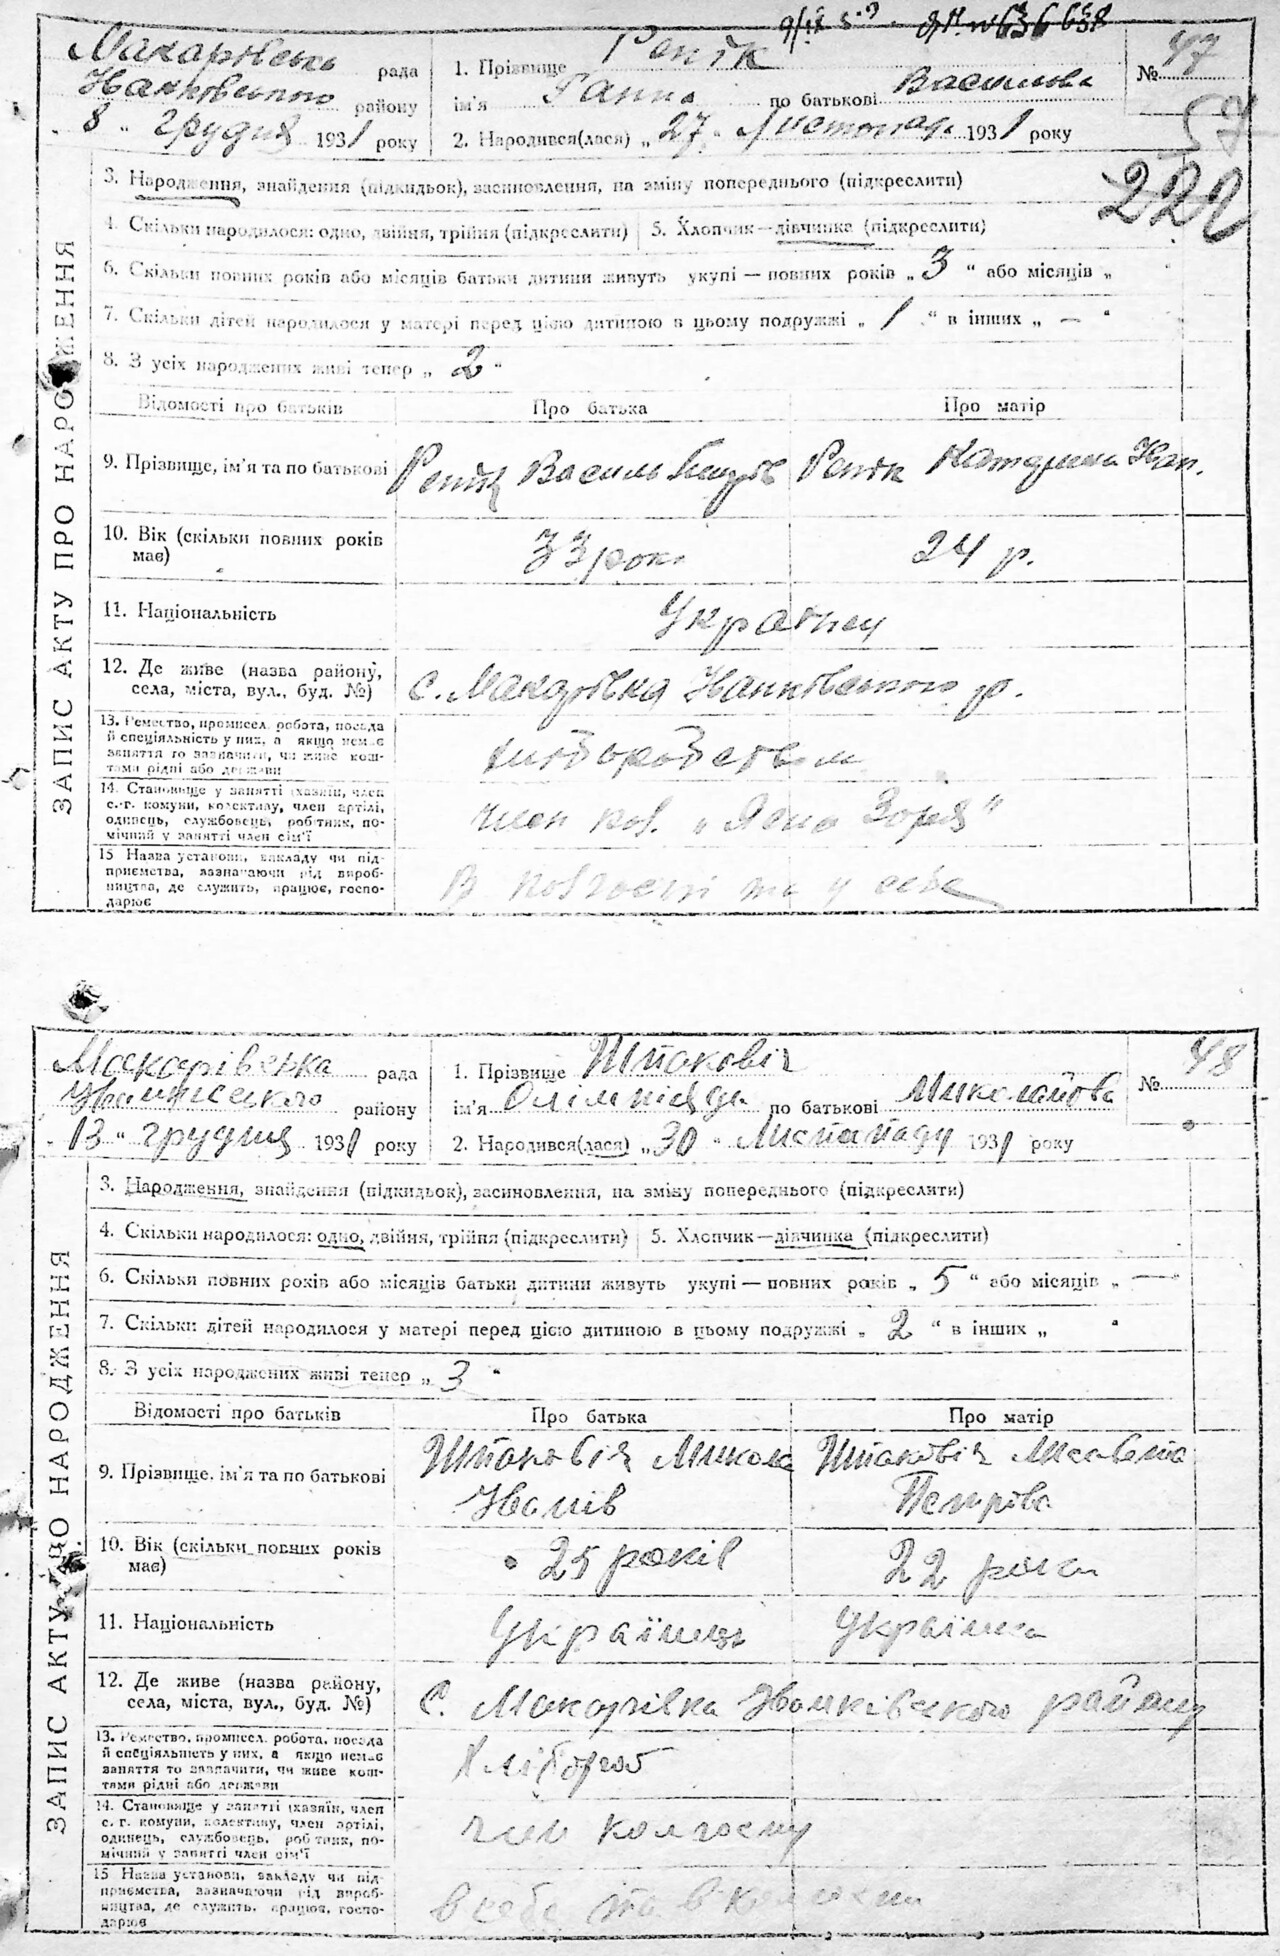 Макарівська рада
Іванківського району
"8" грудня 1931 року
1. Прізвище Репік
ім'я Ганна по батькові Василева
2. Народився(лася) "27" Листопад. 1931 року
№ 47
57
222
ЗАПИС АКТУ ПРО НАРОДЖЕННЯ
3. Народження, знайдення (підкидьок), засиновлення, на зміну попереднього (підкреслити)
4. Скільки народилося: одно, двійня, трійня (підкреслити) 5. Хлопчик—дівчинка (підкреслити)
6. Скільки повних років або місяців батьки дитини живуть укупі — повних років „ 3 “ або місяців „
7. Скільки дітей народилося у матері перед цією дитиною в цьому подружжі „ 1 “ в інших „ — “
8. З усіх народжених живі тепер „ 2 “
Відомості про батьків Про батька Про матір
9. Прізвище, ім'я та по батькові Репік Василь Репік Катерина
10. Вік (скільки повних років має) 33 роки 24 р.
11. Національність Українці
12. Де живе (назва району, села, міста, вул., буд. №) с. Макарівка Іванківського р.
13. Ремество, промисел, робота, посада
й спеціяльність у них, а якщо немає
заняття то зазначити, чи живе кош-
тами рідні або держави
хліборобством
14. Становище у занятті (хазяїн, член
с.-г. комуни, колективу, член артілі,
одинець, службовець, робітник, по-
мічний у занятті член сім'ї
член кол. „Ясна Зоря“
15 Назва установи, закладу чи під-
приємства, зазначаючи рід вироб-
ництва, де служить, працює, госпо-
дарює
В колгоспі та у себе
Макарівська рада
Іванківського району
"13" грудня 1931 року
1. Прізвище Шпаковіч
ім'я Олімпіяда по батькові Миколайова
2. Народився(лася) "30" Листападу 1931 року
№ 48
ЗАПИС АКТУ ПРО НАРОДЖЕННЯ
3. Народження, знайдення (підкидьок), засиновлення, на зміну попереднього (підкреслити)
4. Скільки народилося: одно, двійня, трійня (підкреслити) 5. Хлопчик—дівчинка (підкреслити)
6. Скільки повних років або місяців батьки дитини живуть укупі — повних років „ 5 “ або місяців „ — “
7. Скільки дітей народилося у матері перед цією дитиною в цьому подружжі „ 2 “ в інших „ “
8. З усіх народжених живі тепер „ 3 “
Відомості про батьків Про батька Про матір
9. Прізвище, ім'я та по батькові Шпаковіч Микола Іванів Шпаковіч Лисавета Петрова
10. Вік (скільки повних років має) 25 років 22 роки
11. Національність Українець Українка
12. Де живе (назва району, села, міста, вул., буд. №) С. Макарівка Іванківського району
13. Ремество, промисел, робота, посада
й спеціяльність у них, а якщо немає
заняття то зазначити, чи живе кош-
тами рідні або держави
Хлібороб
14. Становище у занятті (хазяїн, член
с. г. комуни, колективу, член артілі,
одинець, службовець, робітник, по-
мічний у занятті член сім'ї
член колгоспу
15 Назва установи, закладу чи під-
приємства, зазначаючи рід вироб-
ництва, де служить, працює, госпо-
дарює
В себе та в колгоспи